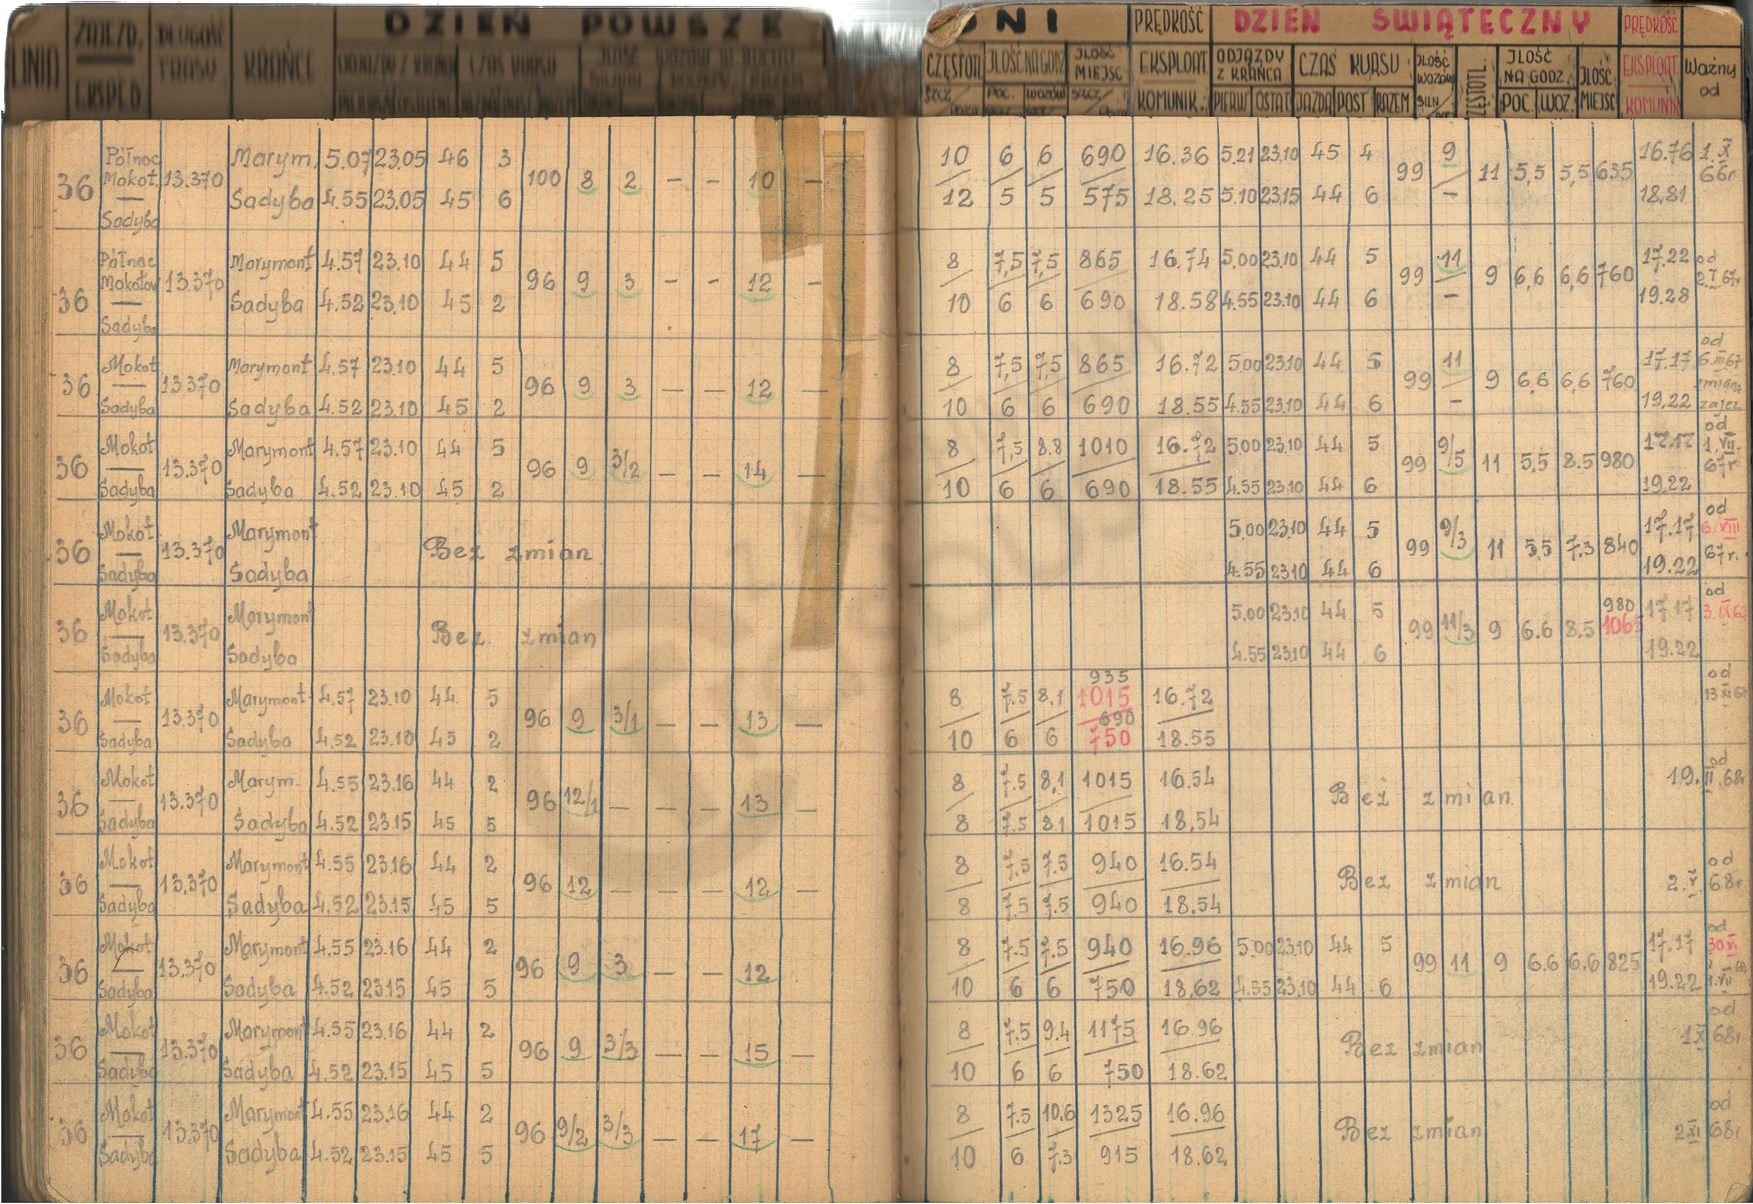 DZIEŃ POWSZEDNI PRĘDKOŚĆ DZIEŃ ŚWIĄTECZNY PRĘDKOŚĆ
LINIA ZAJEZD. EKSPED DŁUGOŚĆ TRASY KRAŃCE CZAS KURSU CZĘSTOTL. ILOŚĆ NA GODZ ILOŚĆ MIEJSC EKSPLOAT KOMUNIK. ODJAZDY Z KRAŃCA CZAS KURSU ILOŚĆ WOZÓW ILOŚĆ NA GODZ. ILOŚĆ MIEJSC EKSPLOAT. KOMUNIK Ważny od
POC. WOZÓW PIERW OSTAT JAZDA POST RAZEM POC. WOZ.
Północ Marym. 5.07 23.05 46 3 10 6 6 690 16.36 5.21 23.10 45 4 9 16.76 1.X
36 Mokot. 13.370 100 8 2 – – 10 99 11 5,5 5,5 635 66r.
Sadyba Sadyba 4.55 23.05 45 6 12 5 5 575 18.25 5.10 23.15 44 6 – 18.81
Północ Marymont 4.57 23.10 44 5 8 7,5 7,5 865 16.74 5.00 23.10 44 5 11 17.22 od
36 Mokotów 13.370 96 9 3 – – 12 – 99 9 6,6 6,6 760
Sadyba Sadyba 4.52 23.10 45 2 10 6 6 690 18.58 4.55 23.10 44 6 – 19.28
Mokot Marymont 4.57 23.10 44 5 8 7,5 7,5 865 16.72 5.00 23.10 44 5 11 17.17 od 6.III 67
36 13.370 96 9 3 – – 12 – 99 9 6,6 6,6 760 zmiana
Sadyba Sadyba 4.52 23.10 45 2 10 6 6 690 18.55 4.55 23.10 44 6 – 19,22 zajez
Mokot Marymont 4.57 23.10 44 5 8 7,5 8.8 1010 16.72 5.00 23.10 44 5 17.17 od 1.VII.
36 13.370 96 9 3/2 – – 14 – 99 9/5 11 5.5 8.5 980 67r
Sadyba Sadyba 4.52 23.10 45 2 10 6 6 690 18.55 4.55 23.10 44 6 19.22
Mokot Marymont 5.00 23.10 44 5 17.17 od 6.VIII
36 13.370 Bez zmian 99 9/3 11 5.5 7.3 840 67r.
Sadyba Sadyba 4.55 23.10 44 6 19.22
Mokot Marymont 5.00 23.10 44 5 980 17.17 od 3.IX
36 13.370 Bez zmian 99 11/3 9 6.6 8.5 1065
Sadyba Sadyba 4.55 23.10 44 6 19.22
Mokot Marymont 4.57 23.10 44 5 8 7.5 8.1 935 1015 16.72 od
36 13.370 96 9 3/1 – – 13 –
Sadyba Sadyba 4.52 23.10 45 2 10 6 6 690 750 18.55
Mokot Marym. 4.55 23.16 44 2 8 7.5 8,1 1015 16.54 od 19.II.68r
36 13.370 96 12/1 – – – 13 – Bez zmian
Sadyba Sadyba 4.52 23.15 45 5 8 7.5 8.1 1015 18,54
Mokot Marymont 4.55 23.16 44 2 8 7.5 7.5 940 16.54 od
36 13.370 96 12 – – – 12 – Bez zmian 2.V. 68r
Sadyba Sadyba 4.52 23.15 45 5 8 7.5 7.5 940 18.54
Mokot Marymont 4.55 23.16 44 2 8 7.5 7.5 940 16.96 5.00 23.10 44 5 17.17 od 30
36 13.370 96 9 3 – – 12 – 99 11 9 6.6 6,6 825
Sadyba Sadyba 4.52 23.15 45 5 10 6 6 750 18,62 4.55 23.10 44 6 19.22 1.VII
Mokot Marymont 4.55 23.16 44 2 8 7.5 9.4 1175 16.96 od
36 13.370 96 9 3/3 – – 15 – Bez zmian 1X 68r
Sadyba Sadyba 4.52 23.15 45 5 10 6 6 750 18.62
Mokot Marymont 4.55 23.16 44 2 8 7.5 10.6 1325 16.96 od
36 13.370 96 9/2 3/3 – – 17 – Bez zmian 2XI 68r
Sadyba Sadyba 4.52 23.15 45 5 10 6 7.3 915 18.62